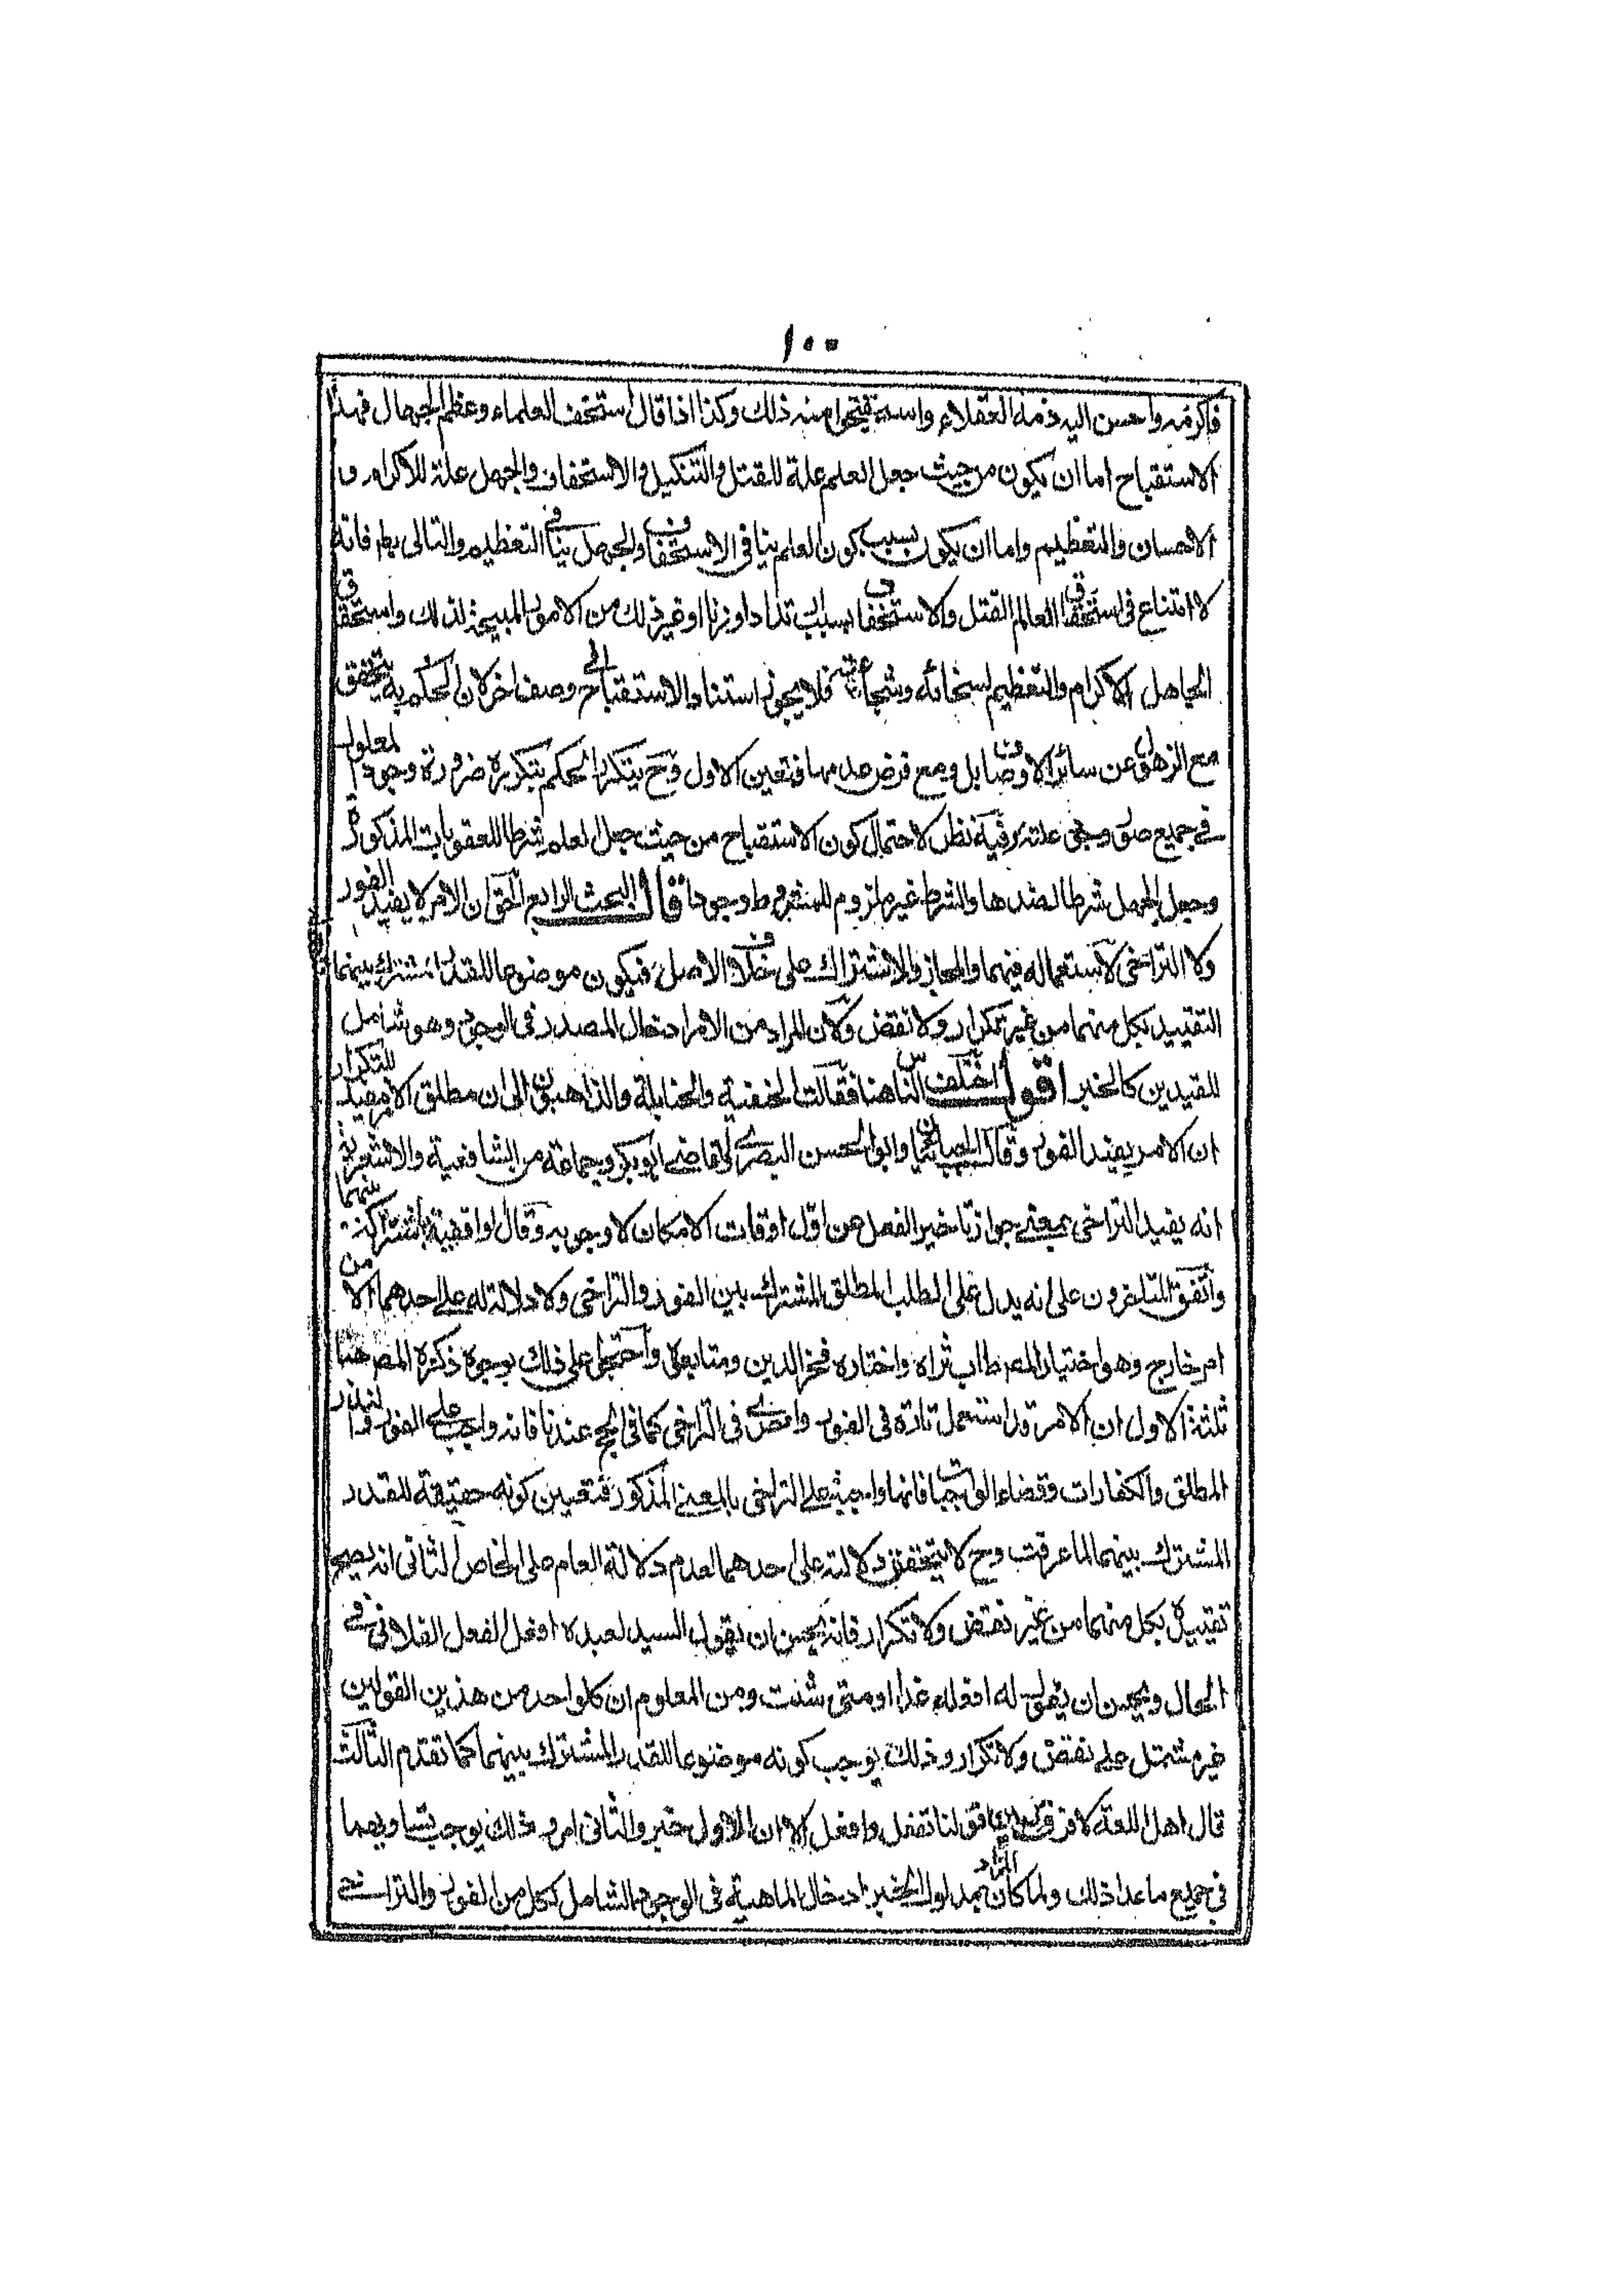 ١٠٠
فاكرمه واحسن اليه ذمه العقلاء واستقبحوا منه ذلك وكذا اذا قال استخف العلماء وعظم الجهال فهذا
الاستقباح اما ان يكون من حيث جعل العلم علة للقتل والتنكيل والاستخفاف والجهل علة للاكرام و
الاحسان والتعظيم واما ان يكون بسبب كون العلم ينافى الاستخفاف والجهل ينافى التعظيم والتالى بط فانه
لا امتناع فى استحقاق العالم القتل والاستخفاف بسبب ارتداد او زنا او غير ذلك من الامور المبيحة لذلك واستحقاق
الجاهل الاكرام والتعظيم لسخائه وشجاعته فلا يجوز استناد الاستقباح الى وصف اخر لان الحكم به يتحقق
مع الذهول عن سائر الاوصاف بل ومع فرض عدمها فتعين الاول وح يتكرر الحكم بتكرره ضرورة وجود المعلول
فى جميع صور وجود علته وفيه نظر لاحتمال كون الاستقباح من حيث جعل العلم شرطا للعقوبات المذكورة
وجعل الجهل شرطا لضدها والشرط غير ملزوم للمشروط وجودا قال البحث الرابع الحق ان الامر لا يفيد الفور
ولا التراخى لاستعماله فيهما والمجاز والاشتراك على خلاف الاصل فيكون موضوعا للقدر المشترك بينهما
التقييد بكل منهما من غير تكرار ولا نقض ولان المراد من الامر ادخال المصدر فى الوجود وهو شامل
للقيدين كالخبر اقول اختلف الناس هنا فقالت الحنفية والحنابلة والذاهبون الى ان مطلق الامر يفيد للتكرار
ان الامر يفيد الفور وقال الجبائيان وابو الحسن البصرى والقاضى ابو بكر وجماعة من الشافعية والاشعرية
انه يفيد التراخى بمعنى جواز تاخير الفعل عن اول اوقات الامكان لا وجوبه وقال الواقفية باشتراكه بينهما
واتفق المتاخرون على انه يدل على الطلب المطلق المشترك بين الفور والتراخى ولا دلالة له على احدهما الا من
امر خارج وهو اختيار المصر طاب ثراه واختاره فخر الدين ومتابعوه واحتجوا على ذلك بوجوه ذكره المصر هنا
ثلثة الاول ان الامر قد استعمل تارة فى الفور واخرى فى التراخى كما فى الحج عندنا فانه واجب على الفور والنذر
المطلق والكفارات وقضاء الواجبات فانها واجبة على التراخى بالمعنى المذكور فتعين كونه حقيقة للقدر
المشترك بينهما لما عرفت وح لا يتحقق دلالته على احدهما لعدم دلالة العام على الخاص الثانى انه يصح
تقييده بكل منهما من غير نقض ولا تكرار فانه يحسن ان يقول السيد لعبده افعل الفعل الفلانى فى
الحال ويحسن ان يقول له افعله غدا او متى شئت ومن المعلوم ان كلواحد من هذين القولين
غير مشتمل على نقض ولا تكرار وذلك يوجب كونه موضوعا للقدر المشترك بينهما كما تقدم الثالث
قال اهل اللغة لا فرق بين قولنا تفعل وافعل الا ان الاول خبر والثانى امر وذلك يوجب تساويهما
فى جميع ما عدا ذلك ولما كان المراد بمدلول الخبر ادخال الماهية فى الوجود الشامل لكل من الفور والتراخى